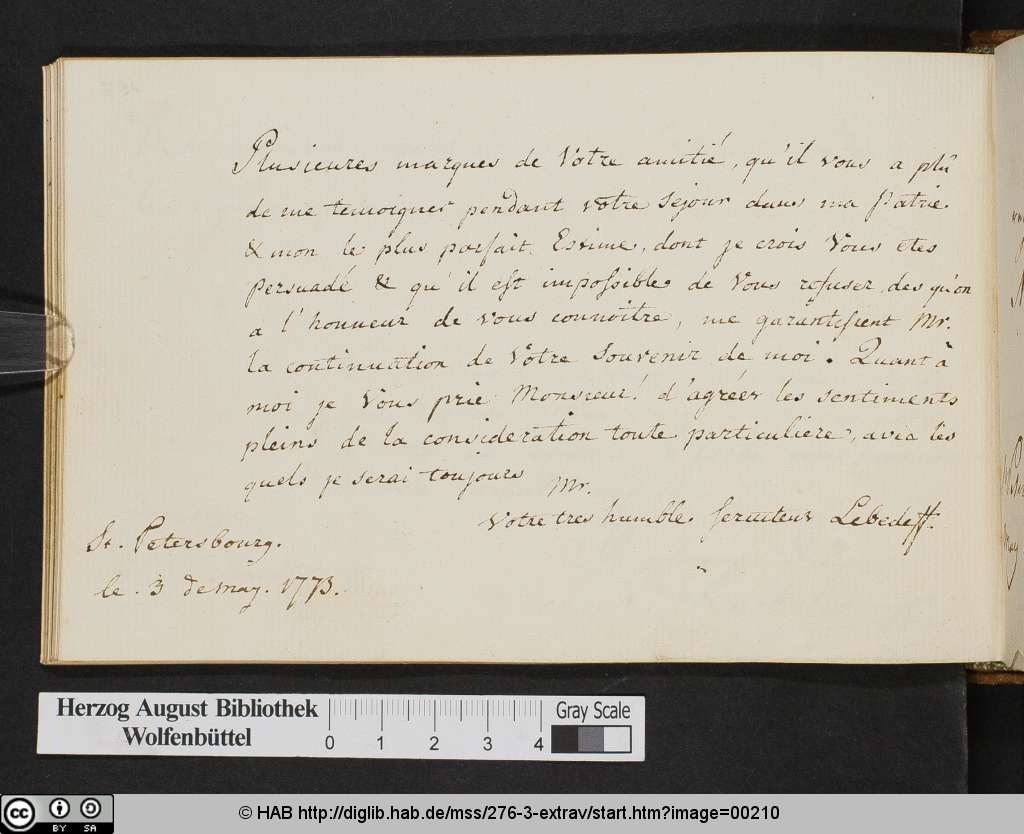 Plusieures marques de Votre amitié, qu'il vous a plû
de me temoigner pendant votre Sejour dans ma Patrie
& mon le plus parfait Estime, dont je crois Vous etes
persuadé & qu'il est impossible de Vous refuser, des qu'on
a l'honneur de vous connoitre, me garantissent Mr.
la continuation de Votre Souvenir de moi. Quant à
moi je Vous prie Monsieur! d'agréer les sentiments
pleins de la consideration toute particuliere, avec les
quels je serai toujours
Mr.
Votre tres humble serviteur Lebedeff.
St. Petersbourg.
le 3 de may. 1773.
Herzog August Bibliothek
Wolfenbüttel
0 1 2 3 4
Gray Scale
cc BY SA
© HAB http://diglib.hab.de/mss/276-3-extrav/start.htm?image=00210